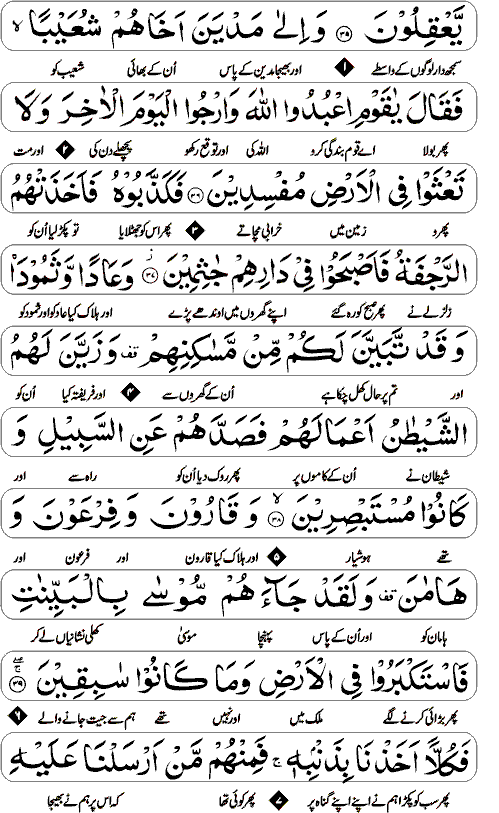 يَّعْقِلُوْنَ ﴿۳۵﴾ وَاِلٰى مَدْيَنَ اَخَاهُمْ شُعَيْبًا ۙ
سمجھ دار لوگوں کے واسطے ۱ اور بھیجا مدین کے پاس اُن کے بھائی شعیب کو
فَقَالَ يٰقَوْمِ اعْبُدُوا اللّٰهَ وَارْجُوا الْيَوْمَ الْاٰخِرَ وَلَا
پھر بولا اے قوم بندگی کرو اللہ کی اور توقع رکھو پچھلے دن کی ۲ اور مت
تَعْثَوْا فِى الْاَرْضِ مُفْسِدِيْنَ ﴿۳۶﴾ فَكَذَّبُوْهُ فَاَخَذَتْهُمُ
پھرو زمین میں خرابی مچاتے ۳ پھر اس کو جھٹلایا تو پکڑ لیا اُن کو
الرَّجْفَةُ فَاَصْبَحُوْا فِىْ دَارِهِمْ جٰثِمِيْنَ ﴿۳۷﴾ وَعَادًا وَّثَمُوْدَا۟
زلزلے نے پھر صبح کو رہ گئے اپنے گھروں میں اوندھے پڑے اور ہلاک کیا عاد کو اور ثمود کو
وَقَدْ تَّبَيَّنَ لَكُمْ مِّنْ مَّسٰكِنِهِمْ ۫ وَزَيَّنَ لَهُمُ
اور تم پر حال کھل چکا ہے اُن کے گھروں سے ۴ اور فریفتہ کیا اُن کو
الشَّيْطٰنُ اَعْمَالَهُمْ فَصَدَّهُمْ عَنِ السَّبِيْلِ وَ
شیطان نے اُن کے کاموں پر پھر روک دیا اُن کو راہ سے اور
كَانُوْا مُسْتَبْصِرِيْنَ ۙ﴿۳۸﴾ وَقَارُوْنَ وَفِرْعَوْنَ وَ
تھے ہوشیار ۵ اور ہلاک کیا قارون اور فرعون اور
هَامٰنَ ۫ وَلَقَدْ جَآءَهُمْ مُّوْسٰى بِالْبَيِّنٰتِ
ہامان کو اور اُن کے پاس پہنچا موسٰی کھلی نشانیاں لے کر
فَاسْتَكْبَرُوْا فِى الْاَرْضِ وَمَا كَانُوْا سٰبِقِيْنَ ﴿۳۹﴾
پھر بڑائی کرنے لگے ملک میں اور نہیں تھے ہم سے جیت جانے والے ۶
فَكُلًّا اَخَذْنَا بِذَنْۢبِهٖ ۚ فَمِنْهُمْ مَّنْ اَرْسَلْنَا عَلَيْهِ
پھر سب کو پکڑا ہم نے اپنے اپنے گناہ پر ۷ پھر کوئی تھا کہ اس پر ہم نے بھیجا